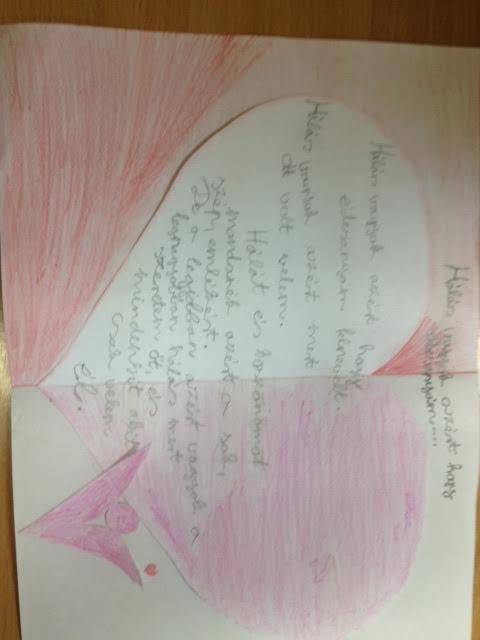 Hálás vagyok azért hogy
édesanyám....
Hálás vagyok azért hogy
édesanyám
Hálás vagyok azért mert
ott volt velem.
Hálát és
mondanék azért a sok,
szép, emlékért.
De a legjobban azért vagyok a
legnagyobban hálás mert
szeretem őt, és
mindenkit aki
csak velem
él.